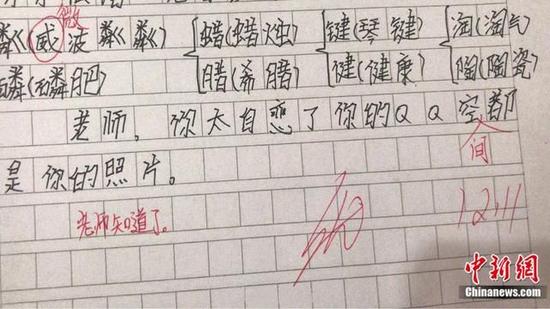 微
粼(威波粼粼) {蜡(蜡烛) {键(琴键) {淘(淘气)
磷(磷肥) 腊(希腊) 健(健康) 陶(陶瓷)
老师,你太自恋了你的QQ空都
间
是你的照片。
老师知道了。
12.11
中新網
Chinanews.com